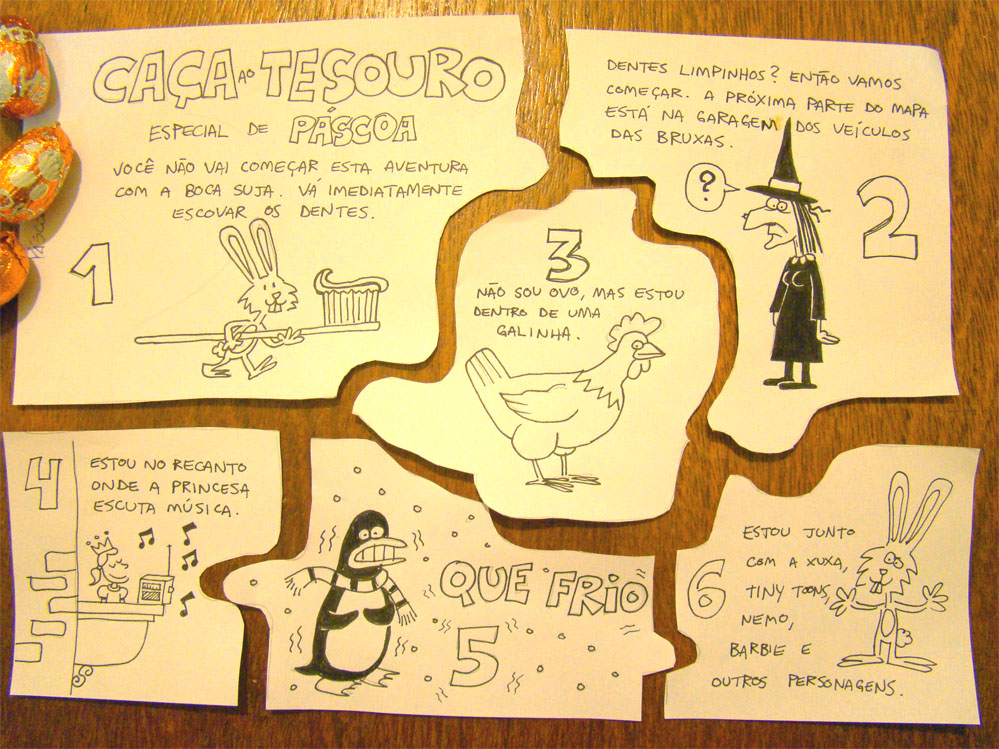 CAÇA AO TESOURO
ESPECIAL DE PÁSCOA
VOCÊ NÃO VAI COMEÇAR ESTA AVENTURA
COM A BOCA SUJA. VÁ IMEDIATAMENTE
ESCOVAR OS DENTES.
1
DENTES LIMPINHOS? ENTÃO VAMOS
COMEÇAR. A PRÓXIMA PARTE DO MAPA
ESTÁ NA GARAGEM DOS VEÍCULOS
DAS BRUXAS.
?
2
3
NÃO SOU OVO, MAS ESTOU
DENTRO DE UMA
GALINHA.
4
ESTOU NO RECANTO
ONDE A PRINCESA
ESCUTA MÚSICA.
QUE FRIO
5
6
ESTOU JUNTO
COM A XUXA,
TINY TOONS,
NEMO,
BARBIE E
OUTROS PERSONAGENS.